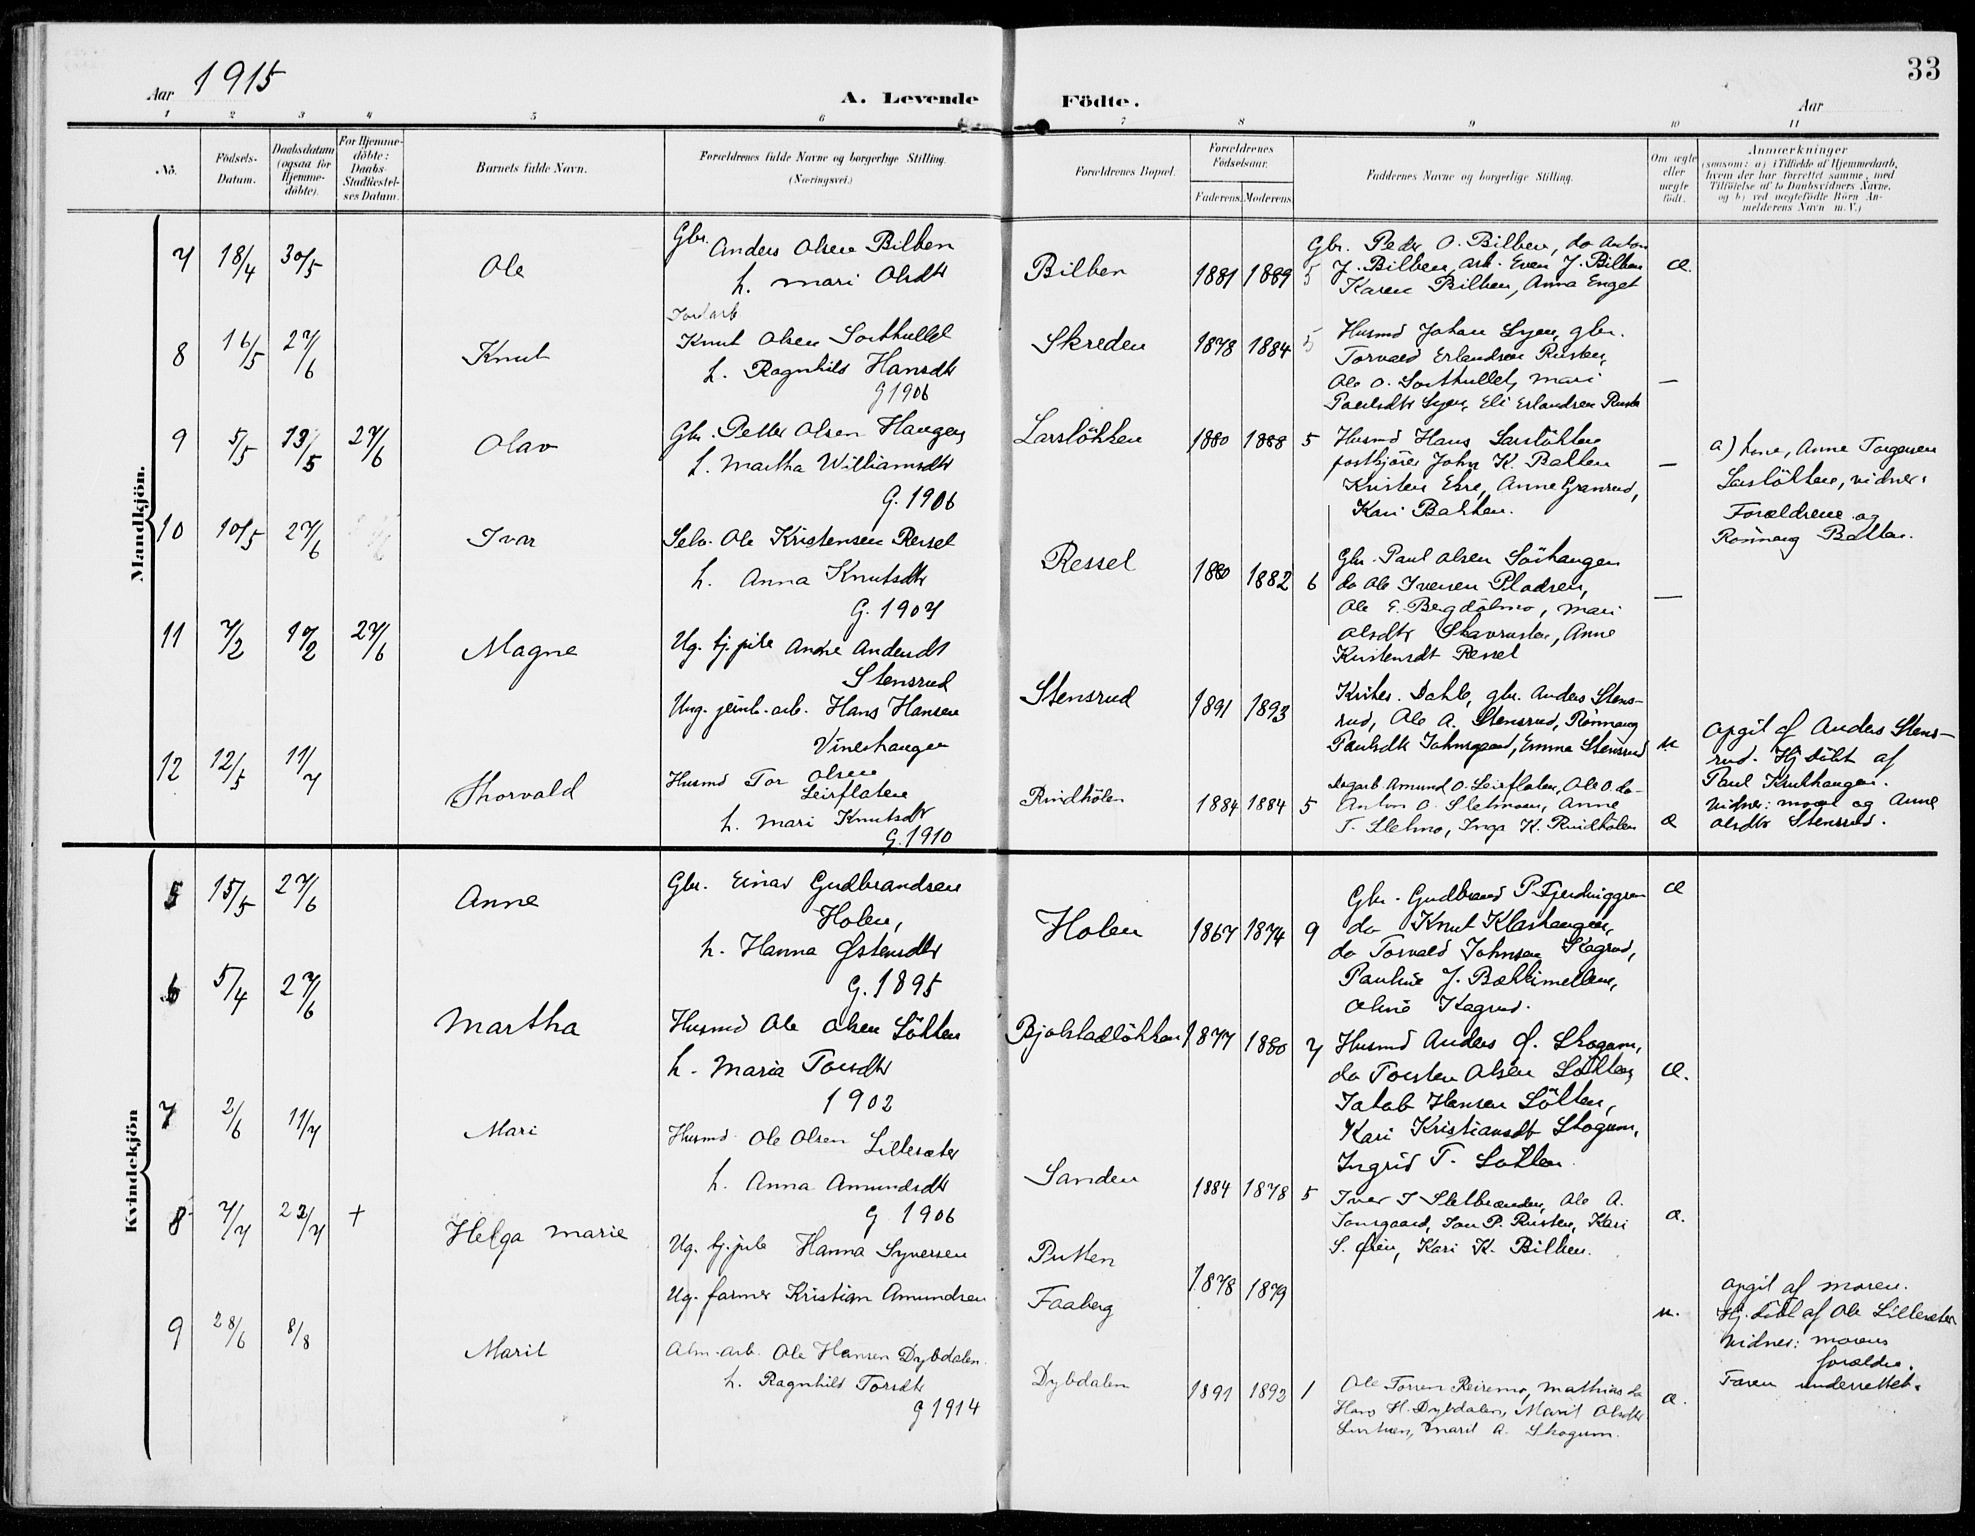 33
Aar 1915
A. Levende Födte.
Aar
1 2 3 4 5 6 7 8 9 10 11
No.
Födsels-
Datum.
Daabsdatum
(ogsaa for
Hjemme-
döbte).
For Hjemme-
döbte:
Daabs-
Stadfæstel-
ses Datum.
Barnets fulde Navn.
Forældrenes fulde Navne og borgerlige Stilling.
(Næringsvei.)
Forældrenes Bopæl.
Forældrenes
Födselsaar.
Faderens. Moderens.
Faddernes Navne og borgerlige Stilling.
Om ægte
eller
uægte
födt.
Anmærkninger
(saasom: a) i Tilfælde af Hjemmedaab,
hvem der har forrettet samme, med
Tilföielse af to Daabsvidners Navne,
og b) ved uægtefödte Börn An-
melderens Navn m. V.)
Mandkjön.
7 18/4 30/5 Ole
Gbr. Anders Olsen Bilben
h. Mari Olsdtr
Bilben 1881 1889 5
Gbr. Peder O. Bilben, do Anton
J. Bilben, arb. Even J. Bilben
Karen Bilben, Anna Enget
Æ.
8 16/5 27/6 Knut
Jordarb
Knut Olsen Sorthullet
h. Ragnhild Hansdtr
G 1906
Skreden 1878 1884 5
Husmd Johan Lyen, gbr.
Torvald Erlandsen Rusten,
Ole O. Sorthullet, Mari
Paulsdtr Lyen, Eli Erlandsen Rusten
—
9 5/5 13/5 27/6 Olav
Gbr. Petter Olsen Haugen
h. Martha Williamsdtr
G. 1906
Larslökken 1880 1888 5
Husmd Hans Larslökken
postkjörer John K. Bakken
Kristen Elne, Anne Granrud,
Kari Bakken.
—
a) kone, Anne Torgersen
Larslökken, vidner:
Forældrene og
Rönnaug Bakken.
10 10/5 27/6 Ivar
Selv. Ole Kristensen Ressel
h. Anna Knutsdtr
G. 1907
Ressel 1880 1882 6
Gbr. Paul Olsen Sörhaugen
do Ole Iversen Pladsen,
Ole E. Bergdölmo, Mari
Olsdtr Skavrusten, Anne
Kristensdt Ressel
—
11 7/2 10/2 27/6 Magne
Ug. tj.pike Anne Andersdt
Stensrud
Ung. jernb.-arb. Hans Hansen
Vineshaugen
Stensrud 1891 1893
Krister. Dahle, gbr. Anders Stens-
rud, Ole A. Stensrud, Rönnaug
Paulsdtr Jahnsgaard, Emma Stensrud
u
Opgit af Anders Stens-
rud. Hj.döbt af
Paul Knukhaugen.
Vidner: moren og Anne
Olsdtr Stensrud.
12 12/5 11/7 Thorvald
Husmd Tor Olsen
Leirflaten
h. Mari Knutsdtr
G. 1910
Rindhölen 1884 1884 5
Dagarb. Amund O. Leirflaten, Ole O. do
Anton O. Sletmoen, Anne
T. Sletmo, Inga K. Rindhölen
Æ
Kvindekjön
5 15/5 27/6 Anne
Gbr. Einar Gudbrandsen
Holen,
h. Hanna Østensdtr
G. 1895
Holen 1867 1874 9
Gbr. Gudbrand P. Fjerdinggren
do Knut Klashaugen,
do Torvald Johnsen Kagrud,
Pauline J. Bækkimellem,
Oline Kagrud.
Æ
6 5/4 27/6 Martha
Husmd Ole Olsen Lökken
h. Maria Torsdtr
1902
Bjolstadlökken 1877 1880 7
Husmd Anders O. Skogum,
do Torsten Olsen Lökken,
Jakob Hansen Lökken,
Kari Kristiansdt Skogum,
Ingrid T. Lökken.
Æ.
7 2/6 11/7 Mari
Husmd Ole Olsen Lillesæter
h. Anna Amundsdtr
G 1906
Sanden 1884 1878 5
Iver I Sletbrænden, Ole A.
Jonsgaard, Jon P. Rusten, Kari
S. Øien, Kari K. Bilben.
Æ.
8 7/7 23/7 + Helga Marie
Ug. tj.pike Hanna Syversen
Ug. farmer Kristian Amundsen
Putten
Faaberg 1878 1879
u.
Opgit af moren.
Hj.döbt af Ole Lillesæter
Vidner: morens
forældre.
Faren underrettet.
9 28/6 8/8 Marit
Alm.-arb. Ole Hansen Dybdalen.
h. Ragnhild Torsdtr
G 1914
Dybdalen 1891 1892 1
Ole Torsen Reiremo, Mathias do
Hans H. Dybdalen, Marit Olsdtr
Marit A. Skogum.
Æ.